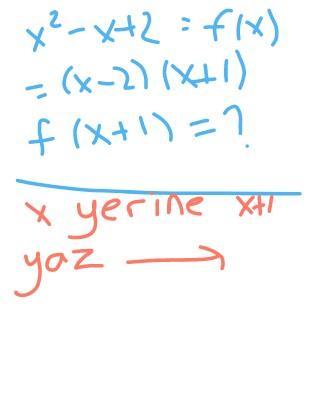 x² - x + 2 = f(x)
= (x-2) (x+1)
f (x+1) = ?
x yerine x+1
yaz →